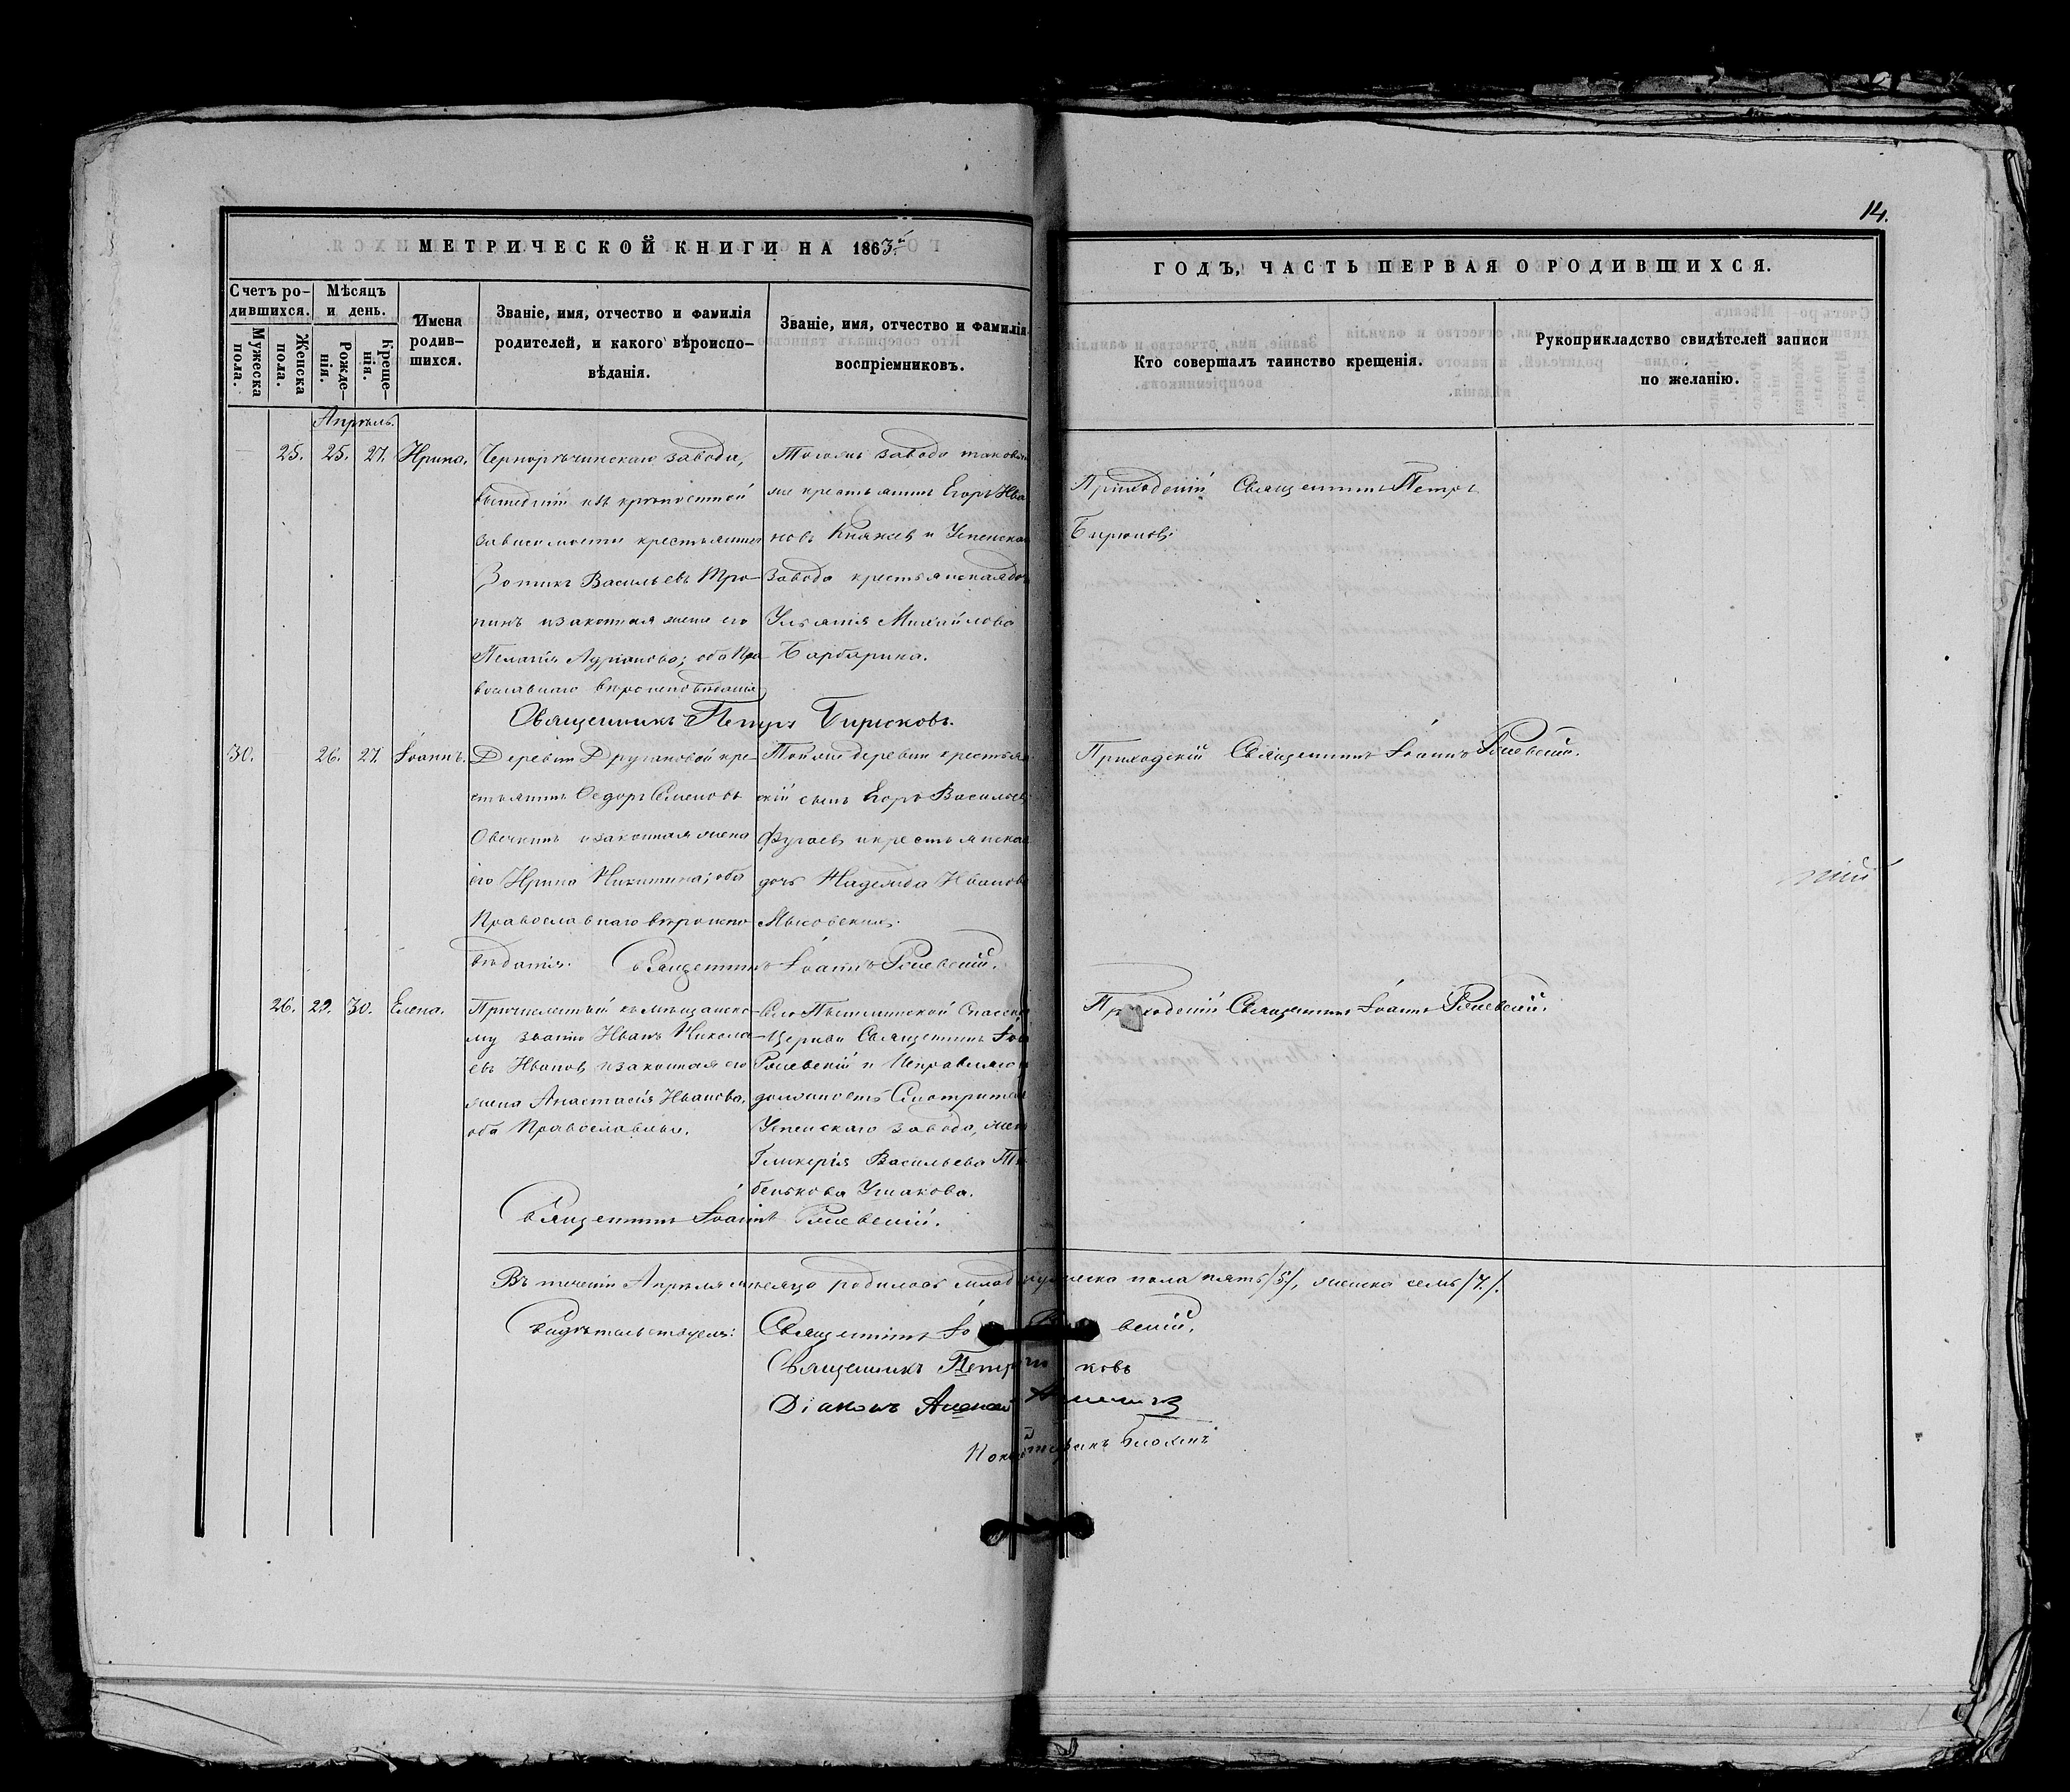 14.
МЕТРИЧЕСКОЙ КНИГИ НА 1863й
ГОДЪ, ЧАСТЬ ПЕРВАЯ О РОДИВШИХСЯ.
Счетъ ро-
дившихся.
Мужеска
пола.
Женска
пола.
Мѣсяцъ
и день.
Рожде-
нія.
креще-
нія.
Имена
родив-
шихся.
Званіе, имя, отчество и фамилія
родителей, и какого вѣроиспо-
вѣданія.
Званіе, имя, отчество и фамилія
воспріемниковъ.
Кто совершалъ таинство крещенія.
Рукоприкладство свидѣтелей записи
по желанію.
Апрѣль.
25. 25. 27. Ирина.
Чернорѣчинскаго завода,
вышедшій изъ крѣпостной
зависимости крестьянинъ
Зотикъ Васильевъ Тро-
нинъ и законная жена его
Пелагія Адріанова; оба Пра-
вославнаго вѣроисповѣданія
Тогожъ завода таковой
же крестьянинъ Егоръ Ива
новъ Князевъ и Успенска
завода крестьянская доч
Ульянія Михайлова
Барбарина.
Приходскій Священникъ Петръ
Бирюковъ.
Священникъ Петръ Бирюковъ.
30. 26. 27. Іоаннъ.
Деревни Другановой кре-
стьянинъ Ѳедоръ Семеновъ
Овечкинъ и законная жена
его Ирина Никитина; оба
Православнаго вѣроиспо
вѣданія.
Той же деревни крестьян
скій сынъ Егоръ Васильевъ
Фугаевъ и крестьянская
дочь Надежда Иванова
Мысовскихъ.
Приходскій Священникъ Іоаннъ
Священникъ Іоаннъ
26. 29. 30. Елена.
Причисленный къ мѣщанско-
му званію Иванъ Никола
евъ Ивановъ и законная его
жена Анастасія Иванова,
оба Православные.
Села Пышминской Спасской
Церкви Священникъ Іоа
и Исправляющ
должность Смотрителя
Успенскаго завода, жена
Гликерія Васильева
Ушакова.
Приходскій Священникъ Іоаннъ
Священникъ Іоаннъ
Въ теченіи Апрѣля мѣсяца родилось млад мужеска пола пять /5/, женска семь /7/.
Свидѣтельствуемъ: Священникъ
Священникъ Петръ
Діаконъ Алексѣй